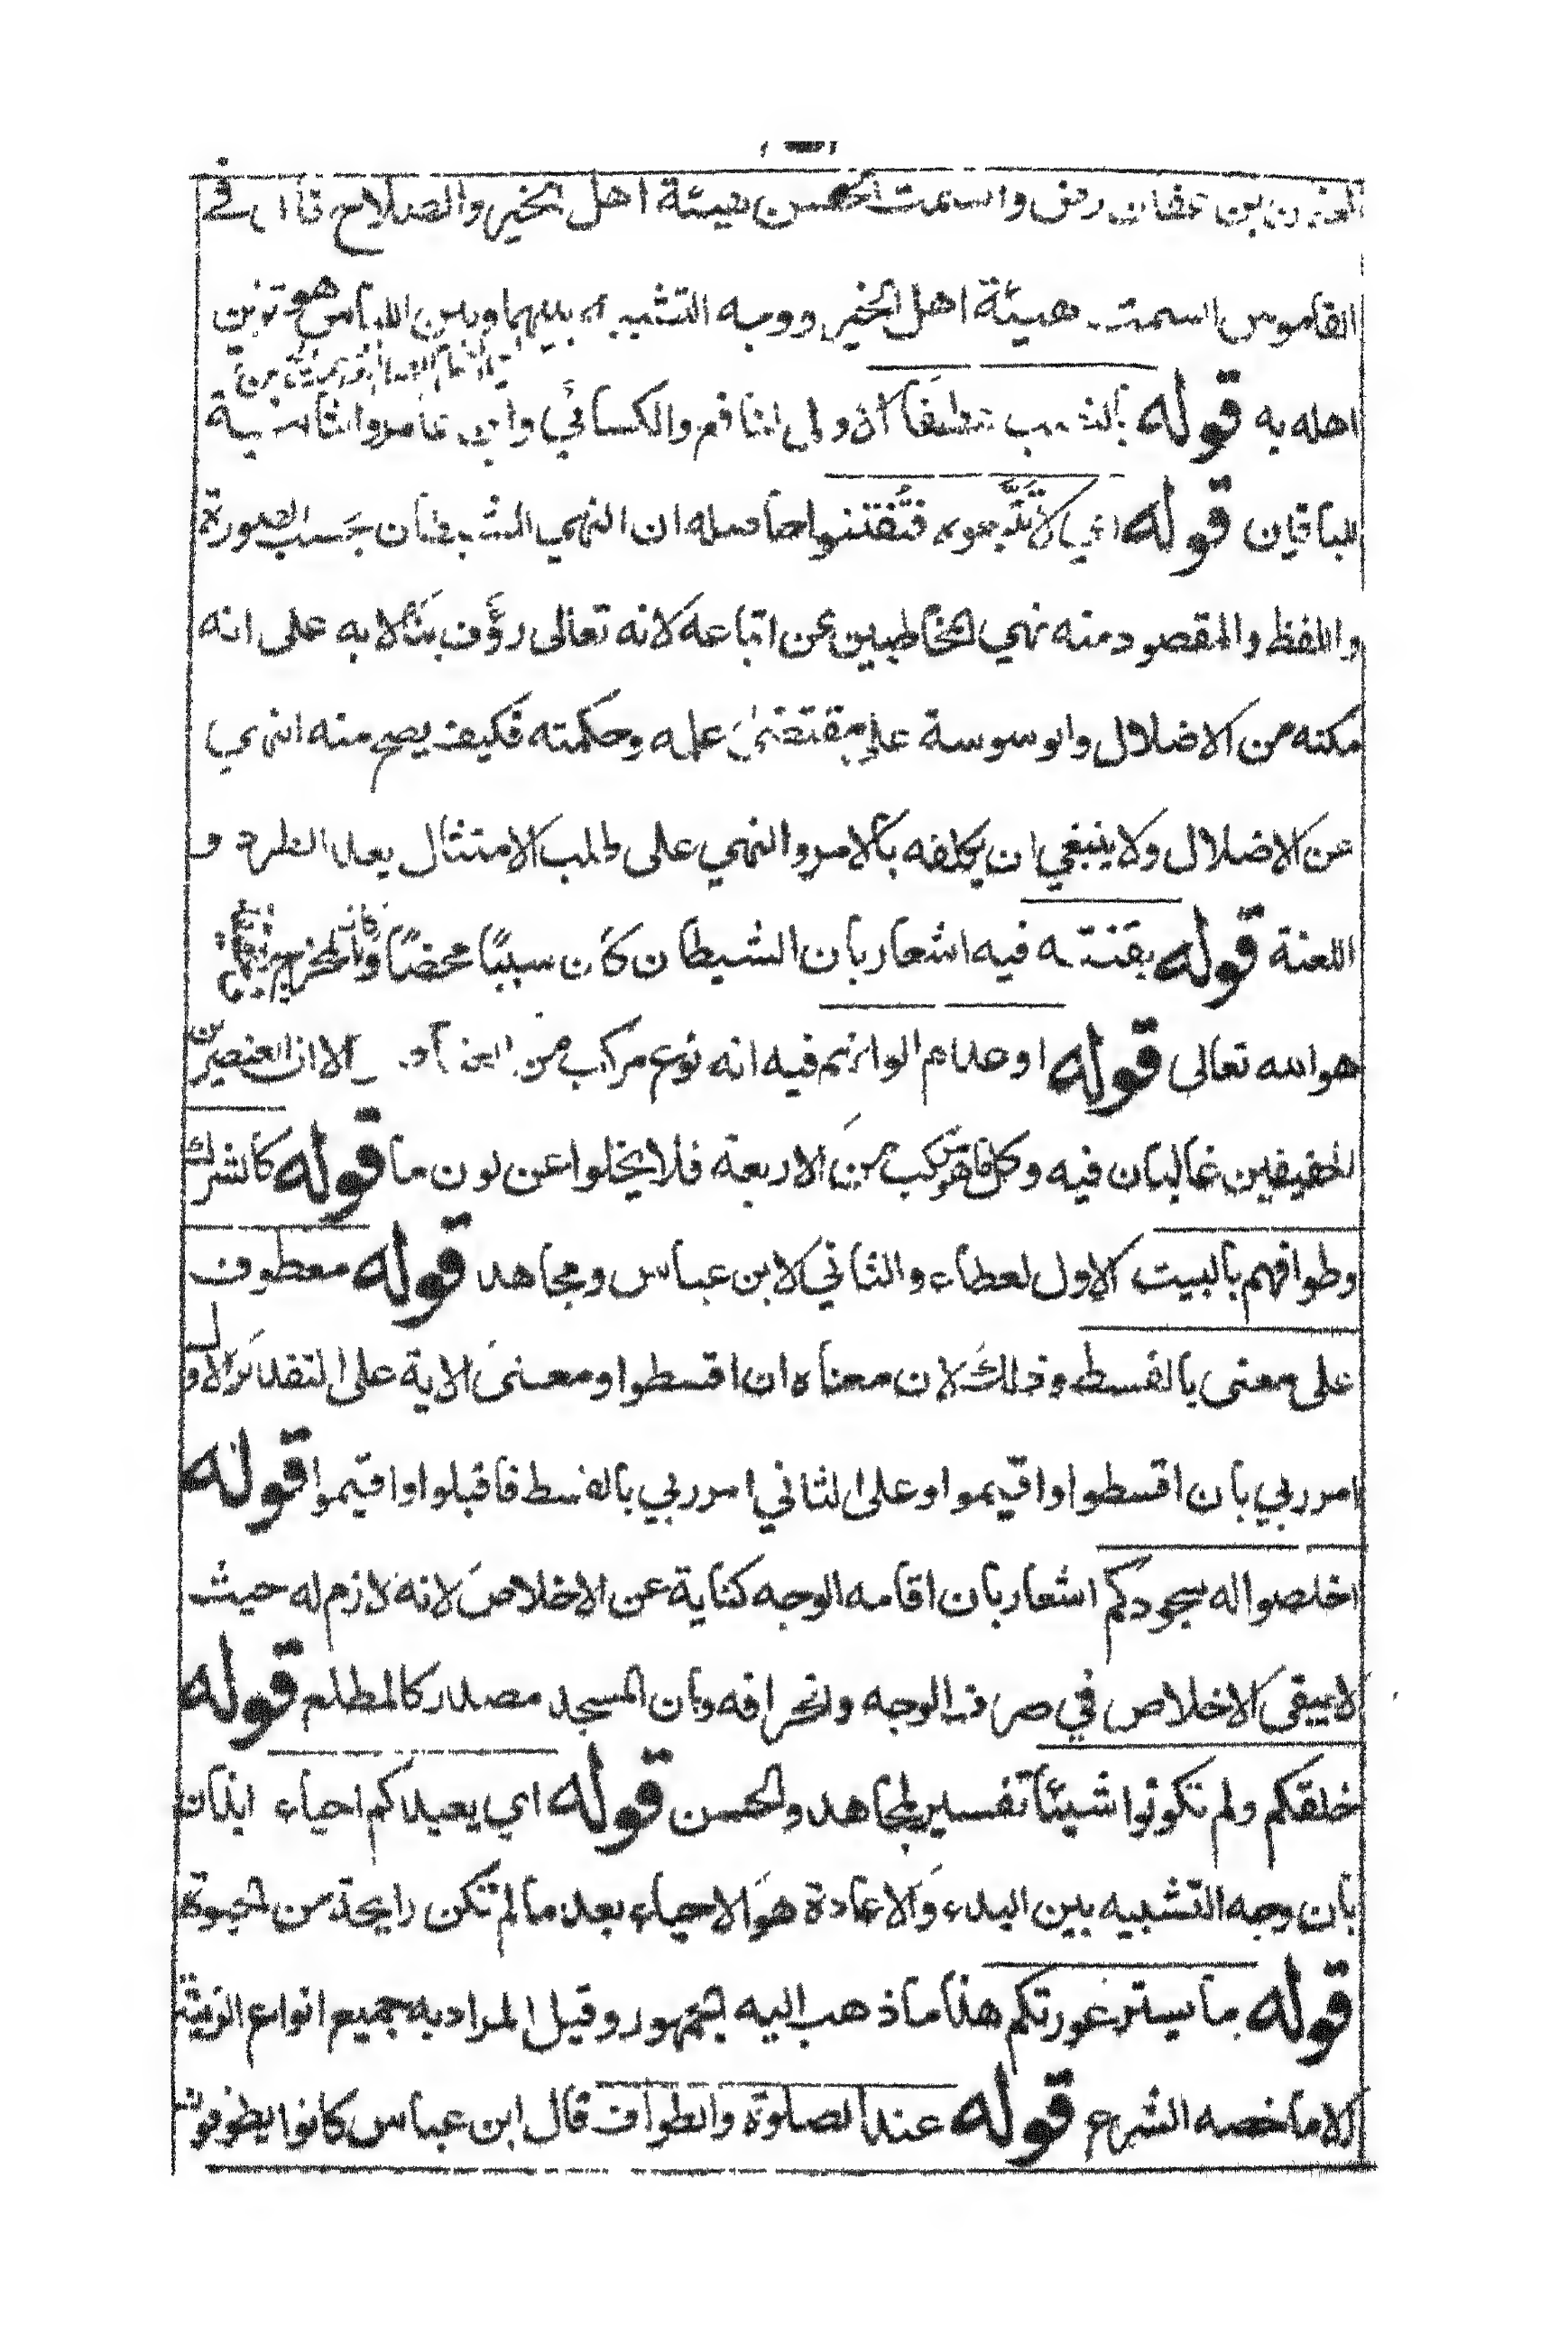 بن عفان رض والسمت الحسن هيئة اهل الخير والصلاح قال في
القاموس السمت هيئة اهل الخير ووجه التشبيه بينهما وبين اللباس هو تزيين
اهله به قوله بالنصب عطفا الاولى لنافع والكسائي وابن عامر والثانية
للباقين قوله اي لا تتبعوه فتفتنوا حاصله ان النهي الشيطان بحسب الصورة
واللفظ والمقصود منه نهي المخاطبين عن اتباعه لانه تعالى رؤف بنا لا به على انه
مكنه من الاضلال والوسوسة على مقتضى علمه وحكمته فكيف يصح منه النهي
عن الاضلال ولا ينبغي ان يكلفه بالامر والنهي على طلب الامتثال بعد الطرد و
اللعنة قوله بفتنته فيه اشعار بان الشيطان كان سببا محضا والمخرج
هو الله تعالى قوله او عدم الوانهم فيه انه نوع مركب من الا ان العنصرين
الخفيفين غالبان فيه وكل مركب من الاربعة فلا يخلوا عن لون ما قوله كالشرك
وطوافهم بالبيت الاول لعطاء والثاني لابن عباس ومجاهد قوله معطوف
على معنى بالقسط وذلك لان معناه ان اقسطوا ومعنى الاية على التقدير الاول
امر ربي بان اقسطوا واقيموا وعلى الثاني امر ربي بالقسط فاقبلوا واقيموا قوله
اخلصوا له سجودكم اشعار بان اقامه الوجه كناية عن الاخلاص لانه لازم له حيث
لا يبقى الاخلاص في صرف الوجه وانحرافه وبان المسجد مصدر كالمطلع قوله
خلقكم ولم تكونوا شيئا تفسير لمجاهد والحسن قوله اي يعيدكم احياء ايذان
بان وجه التشبيه بين البدء والاعادة هو الاحياء بعد ما لم تكن رايحة من الحيوة
قوله ما يستر عورتكم هذا ما ذهب اليه الجمهور وقيل المراد به جميع انواع الزينة
الا ما خصه الشرع قوله عند الصلوة والطواف قال ابن عباس كانوا يطوفون